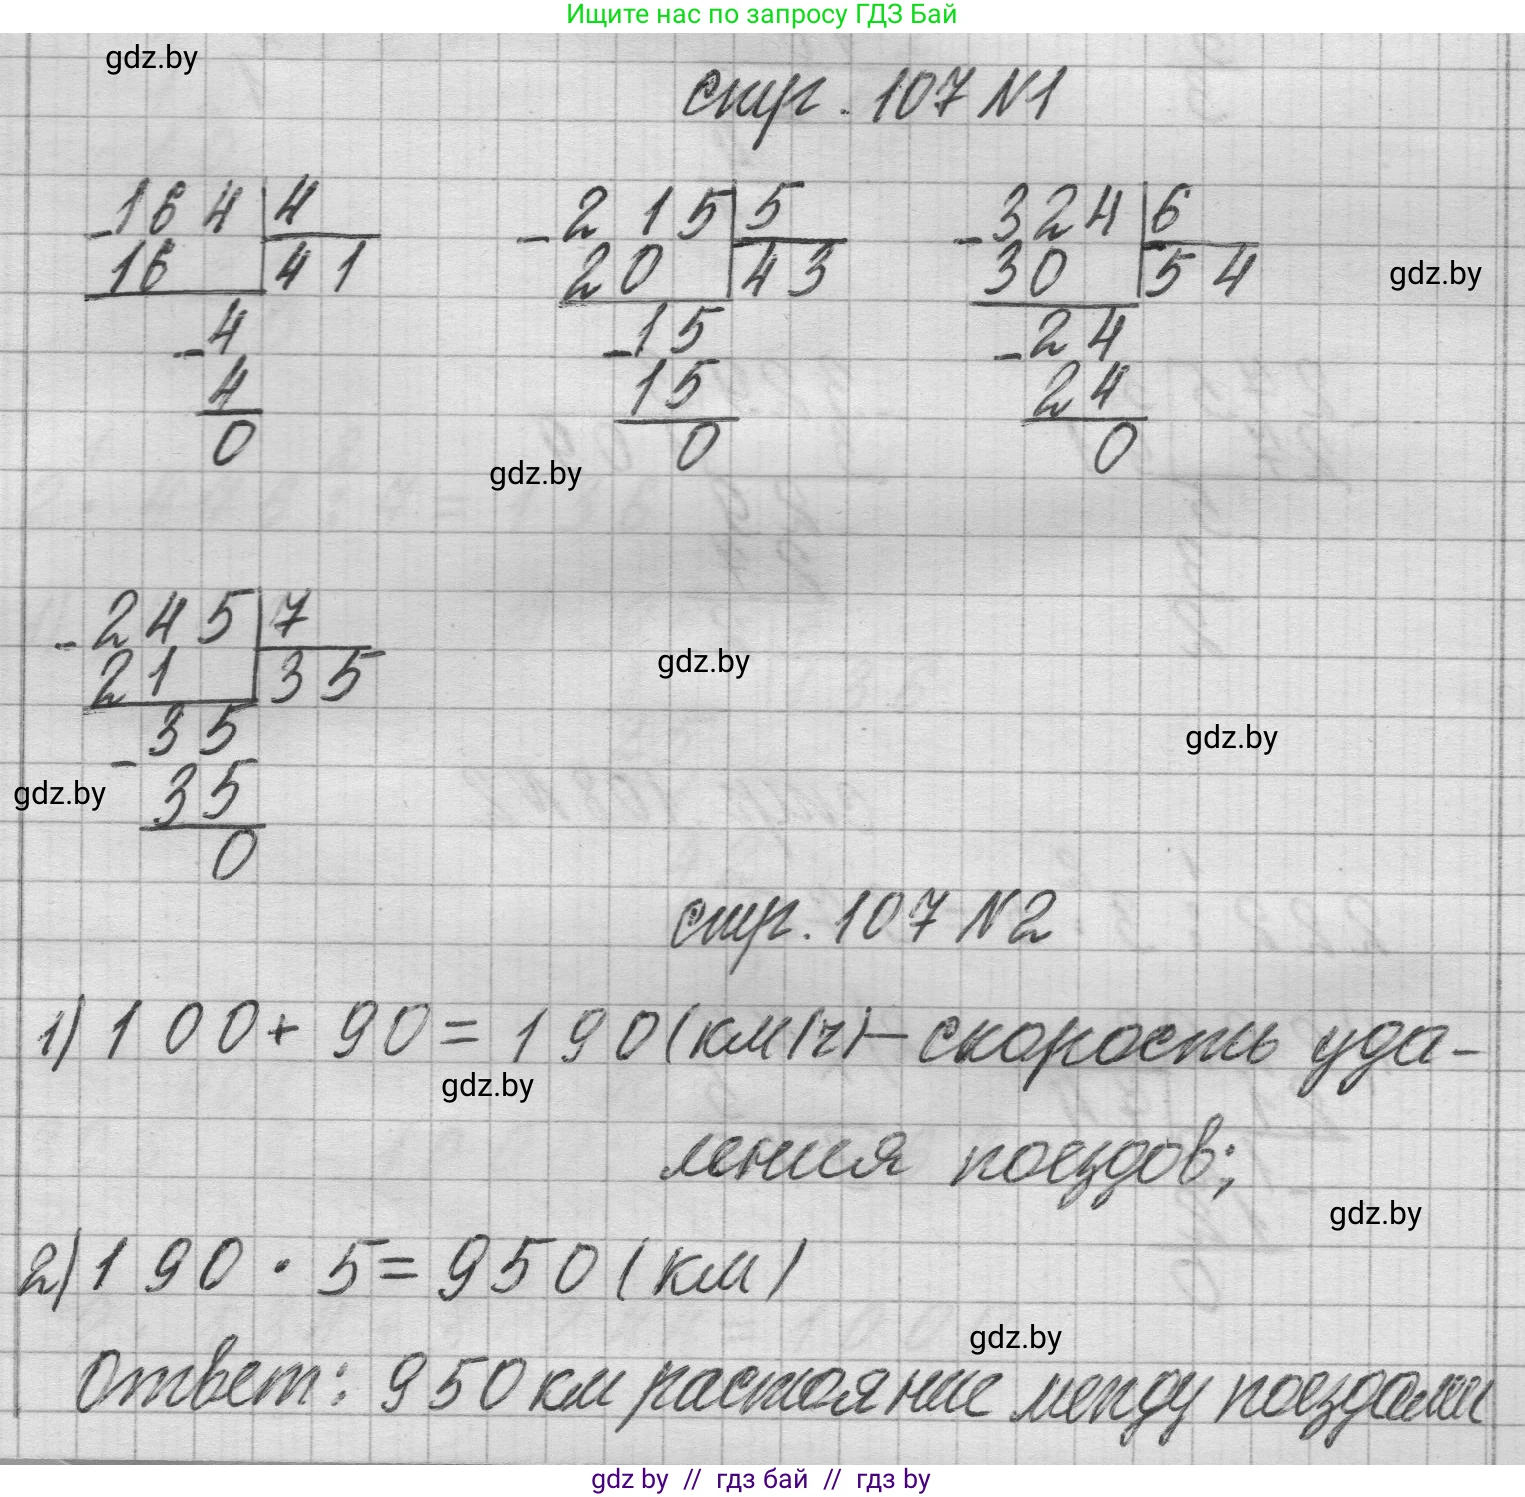 Ищите нас по запросу ГДЗ Бай
gdz.by
стр. 107 N1
-164 | 4
16 | 41
-4
4
0
-215 | 5
20 | 43
-15
15
0
-324 | 6
30 | 54
-24
24
0
gdz.by
gdz.by
-245 | 7
21 | 35
-35
35
0
gdz.by
gdz.by
gdz.by
стр. 107 N2
1) 100 + 90 = 190 (км/ч) - скорость уда-
gdz.by
ления поездов;
gdz.by
2) 190 · 5 = 950 (км)
gdz.by
Ответ: 950 км растояние между поездами
gdz by // гдз бай // гдз by